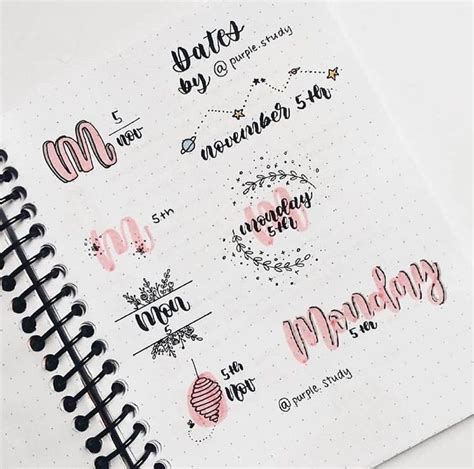 Dates
by @purple.study
m 5
nov
november 5th
m 5th
m
monday
5th
mon
Monday
5th
5th
nov
@purple.study